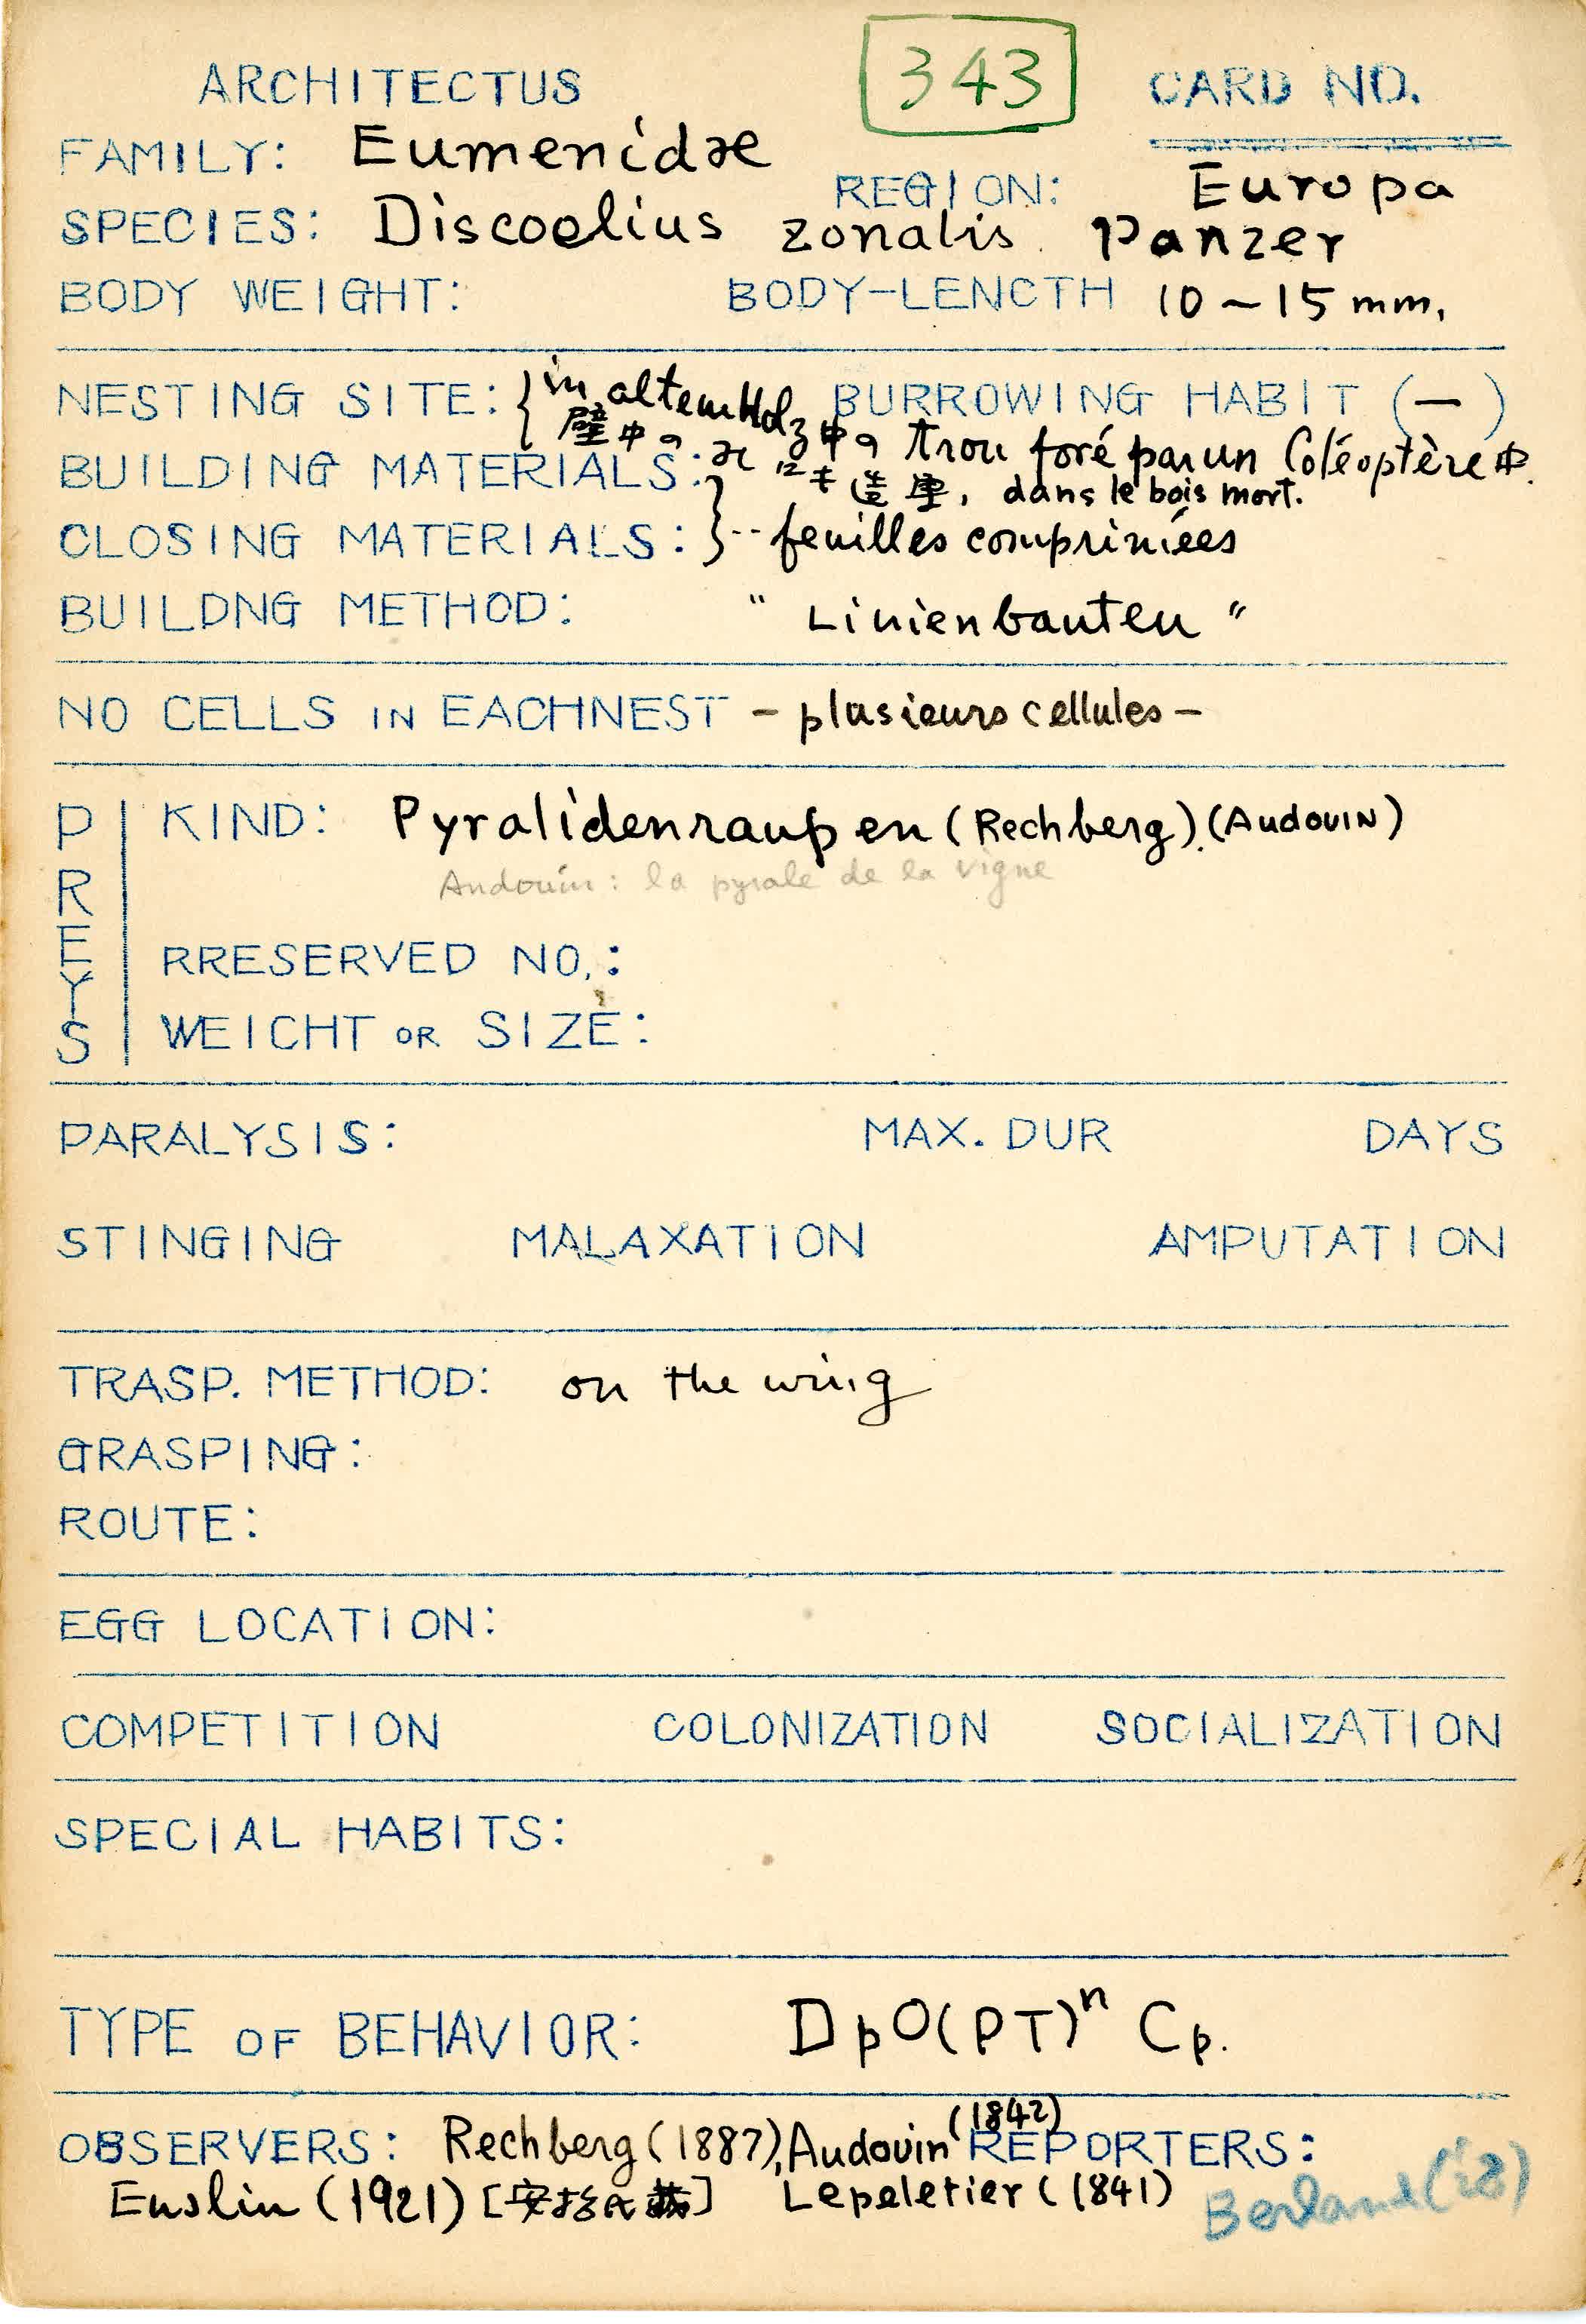 ARCHITECTUS 343 CARD NO.
FAMILY: Eumenidae
REGION: Europa
SPECIES: Discoelius zonalis Panzer
BODY WEIGHT: BODY-LENCTH 10~15 mm.
NESTING SITE: { in altem Holz BURROWING HABIT (-)
壁中の 中の trou foré par un Coléoptère中.
BUILDING MATERIALS: にも造巣, dans le bois mort.
CLOSING MATERIALS: }-- feuilles comprimées
BUILDNG METHOD: "Linienbauten"
NO CELLS IN EACHNEST - plusieurs cellules -
PREYS
KIND: Pyralidenraupen (Rechberg). (Audouin)
Audouin: la pyrale de la vigne
RRESERVED NO.:
WEICHT OR SIZE:
PARALYSIS: MAX. DUR DAYS
STINGING MALAXATION AMPUTATION
TRASP. METHOD: on the wing
GRASPING:
ROUTE:
EGG LOCATION:
COMPETITION COLONIZATION SOCIALIZATION
SPECIAL HABITS:
TYPE OF BEHAVIOR: DpO(PT)ⁿ Cp.
OBSERVERS: Rechberg (1887), Audouin (1842) REPORTERS:
Enslin (1921) [安松氏藏] Lepeletier (1841) Berland ('28)